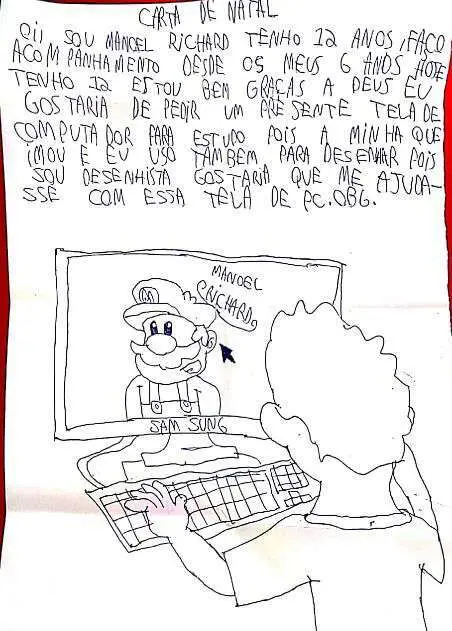 CARTA DE NATAL
Oii SOU MANOEL RICHARD TENHO 12 ANOS, FAÇO
ACOMPANHAMENTO DESDE OS MEUS 6 ANOS HOJE
TENHO 12 ESTOU BEM GRAÇAS A DEUS EU
GOSTARIA DE PEDIR UM PRESENTE TELA DE
COMPUTADOR PARA ESTUDO POIS A MINHA QUE
iMOU E EU USO TAMBEM PARA DESENHAR POIS
SOU DESENHISTA GOSTARIA QUE ME AJUDA-
SSE COM ESSA TELA DE PC.OBG.
MANOEL
RICHARD
M
SAM SUNG